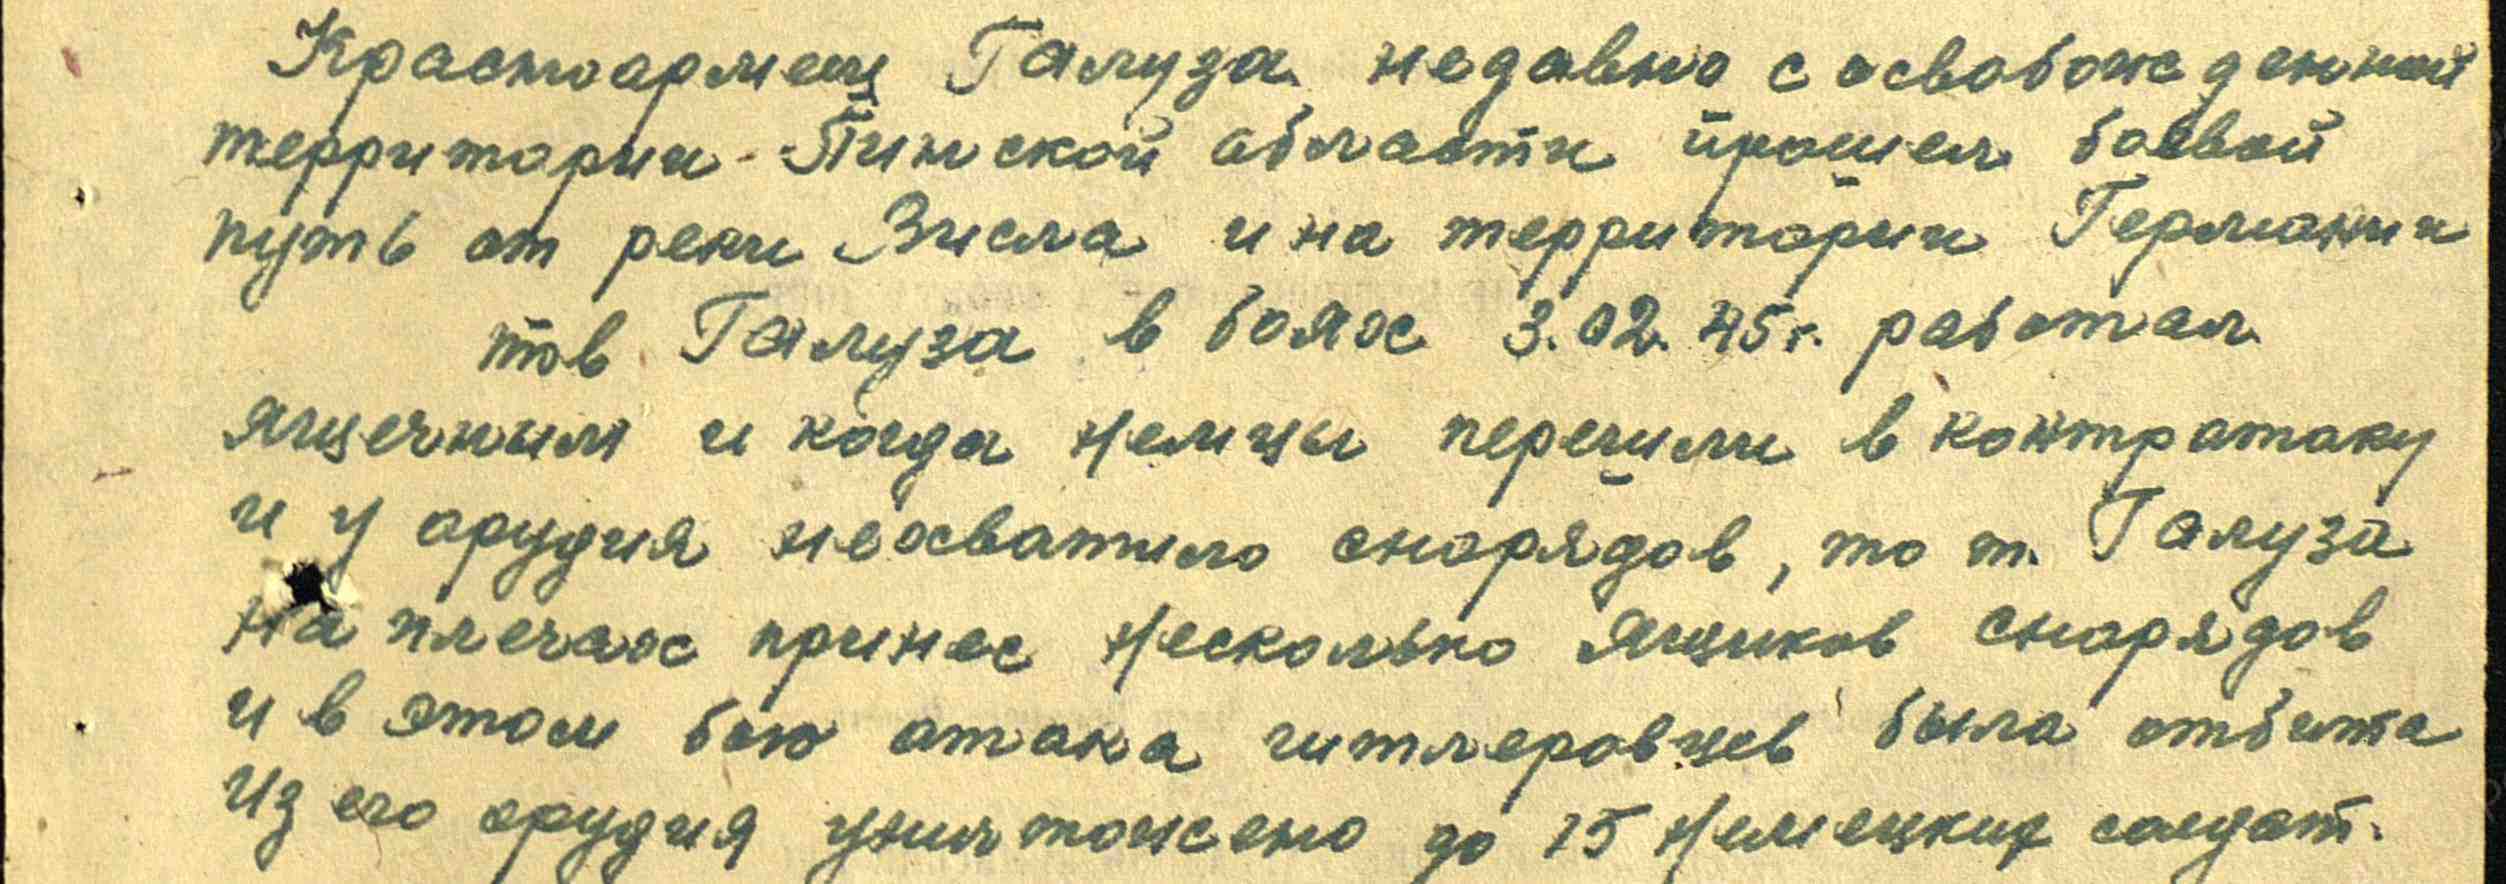 Красноармеец Галуза недавно с освобожденной
территории Пинской области прошел боевой
путь от реки Висла и на территории Германии
тов Галуза в боях 3.02.45г. работал
ящечным и когда немцы перешли в контратаку
и у орудия нехватило снарядов, то т. Галуза
на плечах принес несколько ящиков снарядов
и в этом бою атака гитлеровцев была отбита
Из его орудия уничтожено до 15 немецких солдат.